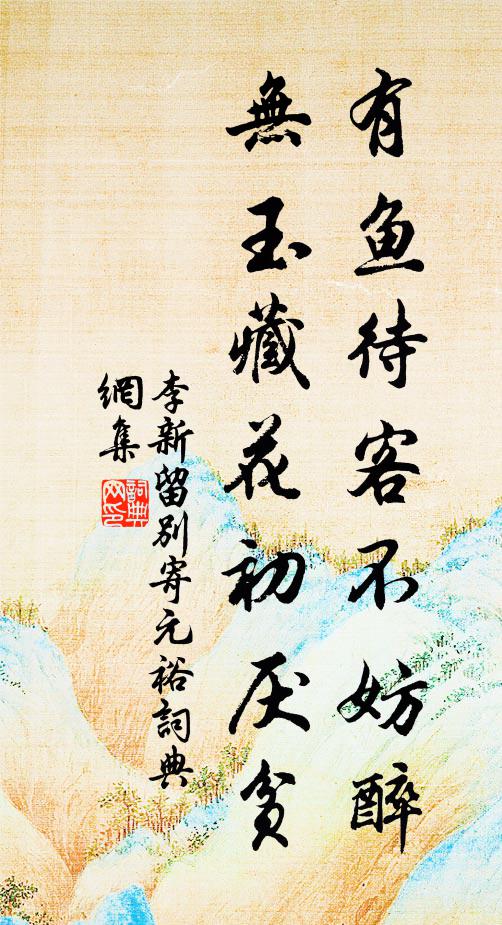 有鱼待客不妨醉
無玉藏花初厌貧
李新留别寄元裕詞典
網集
詞典網印